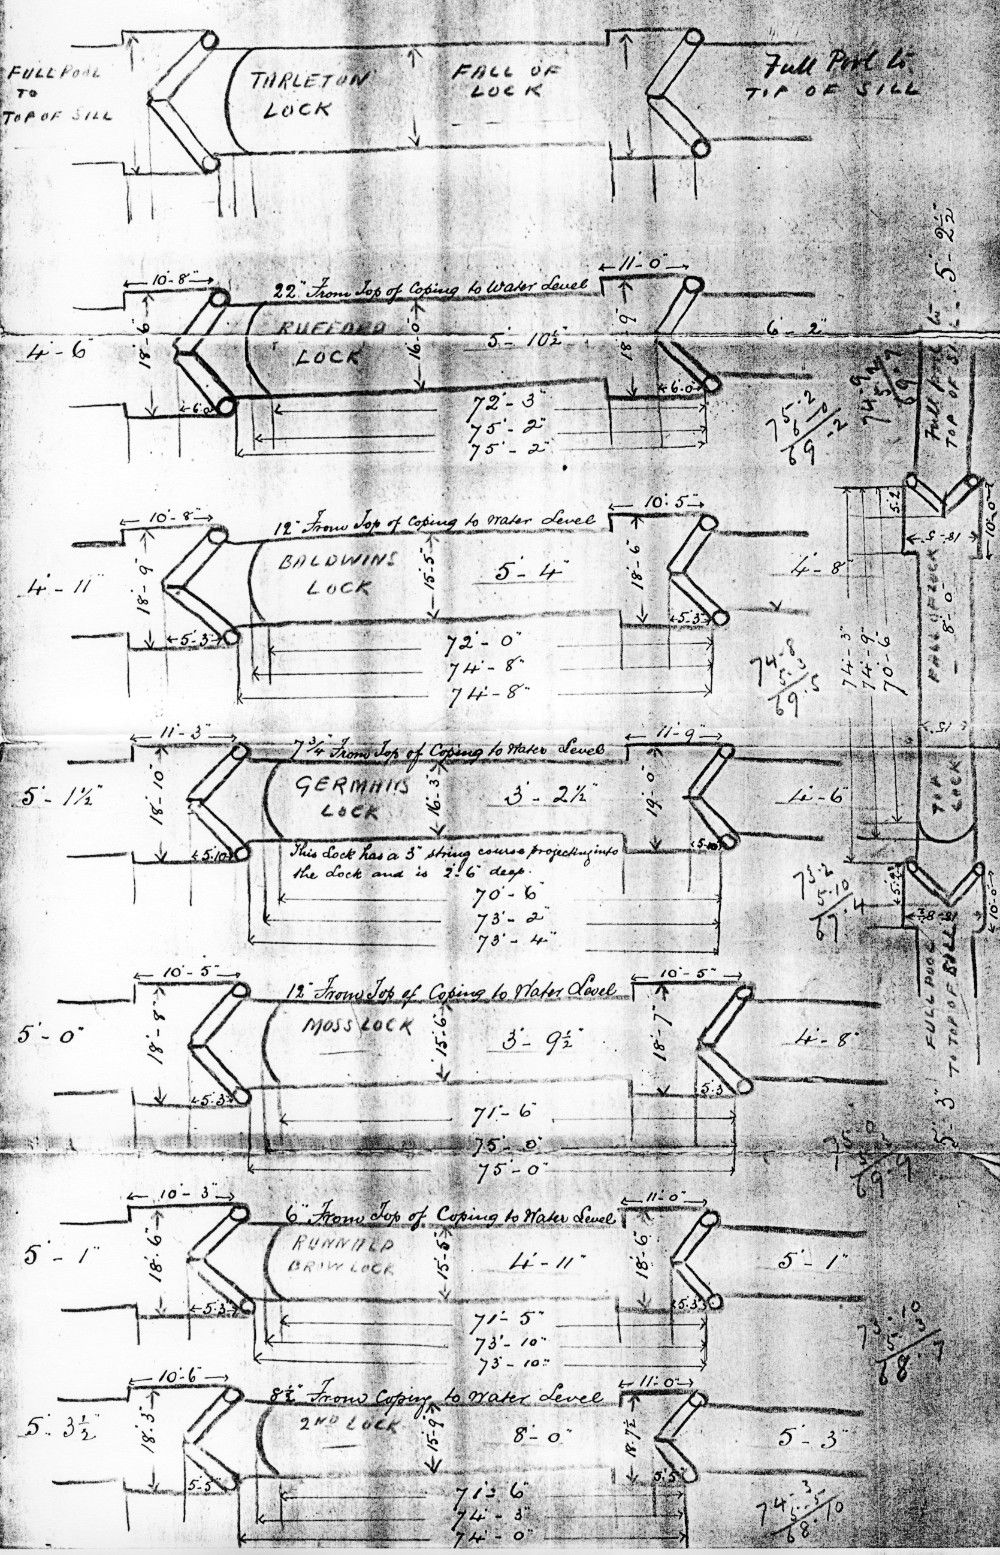 FULL POOL
TO
TOP OF SILL
TARLETON
LOCK
FALL OF
LOCK
Full Pool to
TOP OF SILL
10'-8"
22" From Top of Coping to Water Level
11'-0"
4'-6"
18'-6"
RUFFORD
LOCK
16'-0"
5'-10½"
18'-9"
6'-2"
6.0
6.0
72'-3"
75'-2"
75'-2"
75.2
6-0
69-2
74.9
5.2
69.7
10'-8"
12" From Top of Coping to Water Level
10'-5"
4'-11"
18'-9"
BALDWINS
LOCK
15'-5"
5'-4"
18'-6"
4'-8"
5-3"
5.3"
72'-0"
74'-8"
74'-8"
74-8
5.3
69.5
11'-3"
7¾" From Top of Coping to Water Level
11'-9"
5'-1½"
18'-10"
GERMANS
LOCK
16'-3"
3'-2½"
19'-0"
4'-6"
5.10
5.10
This Lock has a 3" string course projecting into
the Lock and is 2'-6" deep.
70'-6"
73'-2"
73'-4"
73.2
5.10
67.4
10'-5"
12" From Top of Coping to Water Level
10'-5"
5'-0"
18'-8"
MOSS LOCK
15'-6"
3'-9½"
18'-7"
4'-8"
5.3"
5.3
71'-6"
75'-0"
75'-0"
75.0
5.3
69.9
10'-3"
6" From Top of Coping to Water Level
11'-0"
5'-1"
18'-6"
RUNNALD
BROW LOCK
15'-5"
4'-11"
18'-6"
5'-1"
5.3"
5.3"
71'-5"
73'-10"
73'-10"
68.7
10'-6"
8½" From Coping to Water Level
11'-0"
5'-3½"
18'-3"
2ND LOCK
15'-9"
8'-0"
18'-7½"
5'-3"
5'-5"
5'5"
71'-6"
74'-3"
74'-0"
74-3
5-5
68.10
Full Pool to
TOP OF SILL
5'-2½"
5.2
10'-0"
18'-5"
FALL OF LOCK
8'-0"
74'-3"
74'-9"
70'-6"
TOP
LOCK
10'-0"
FULL POOL
TO TOP OF
5'-3"